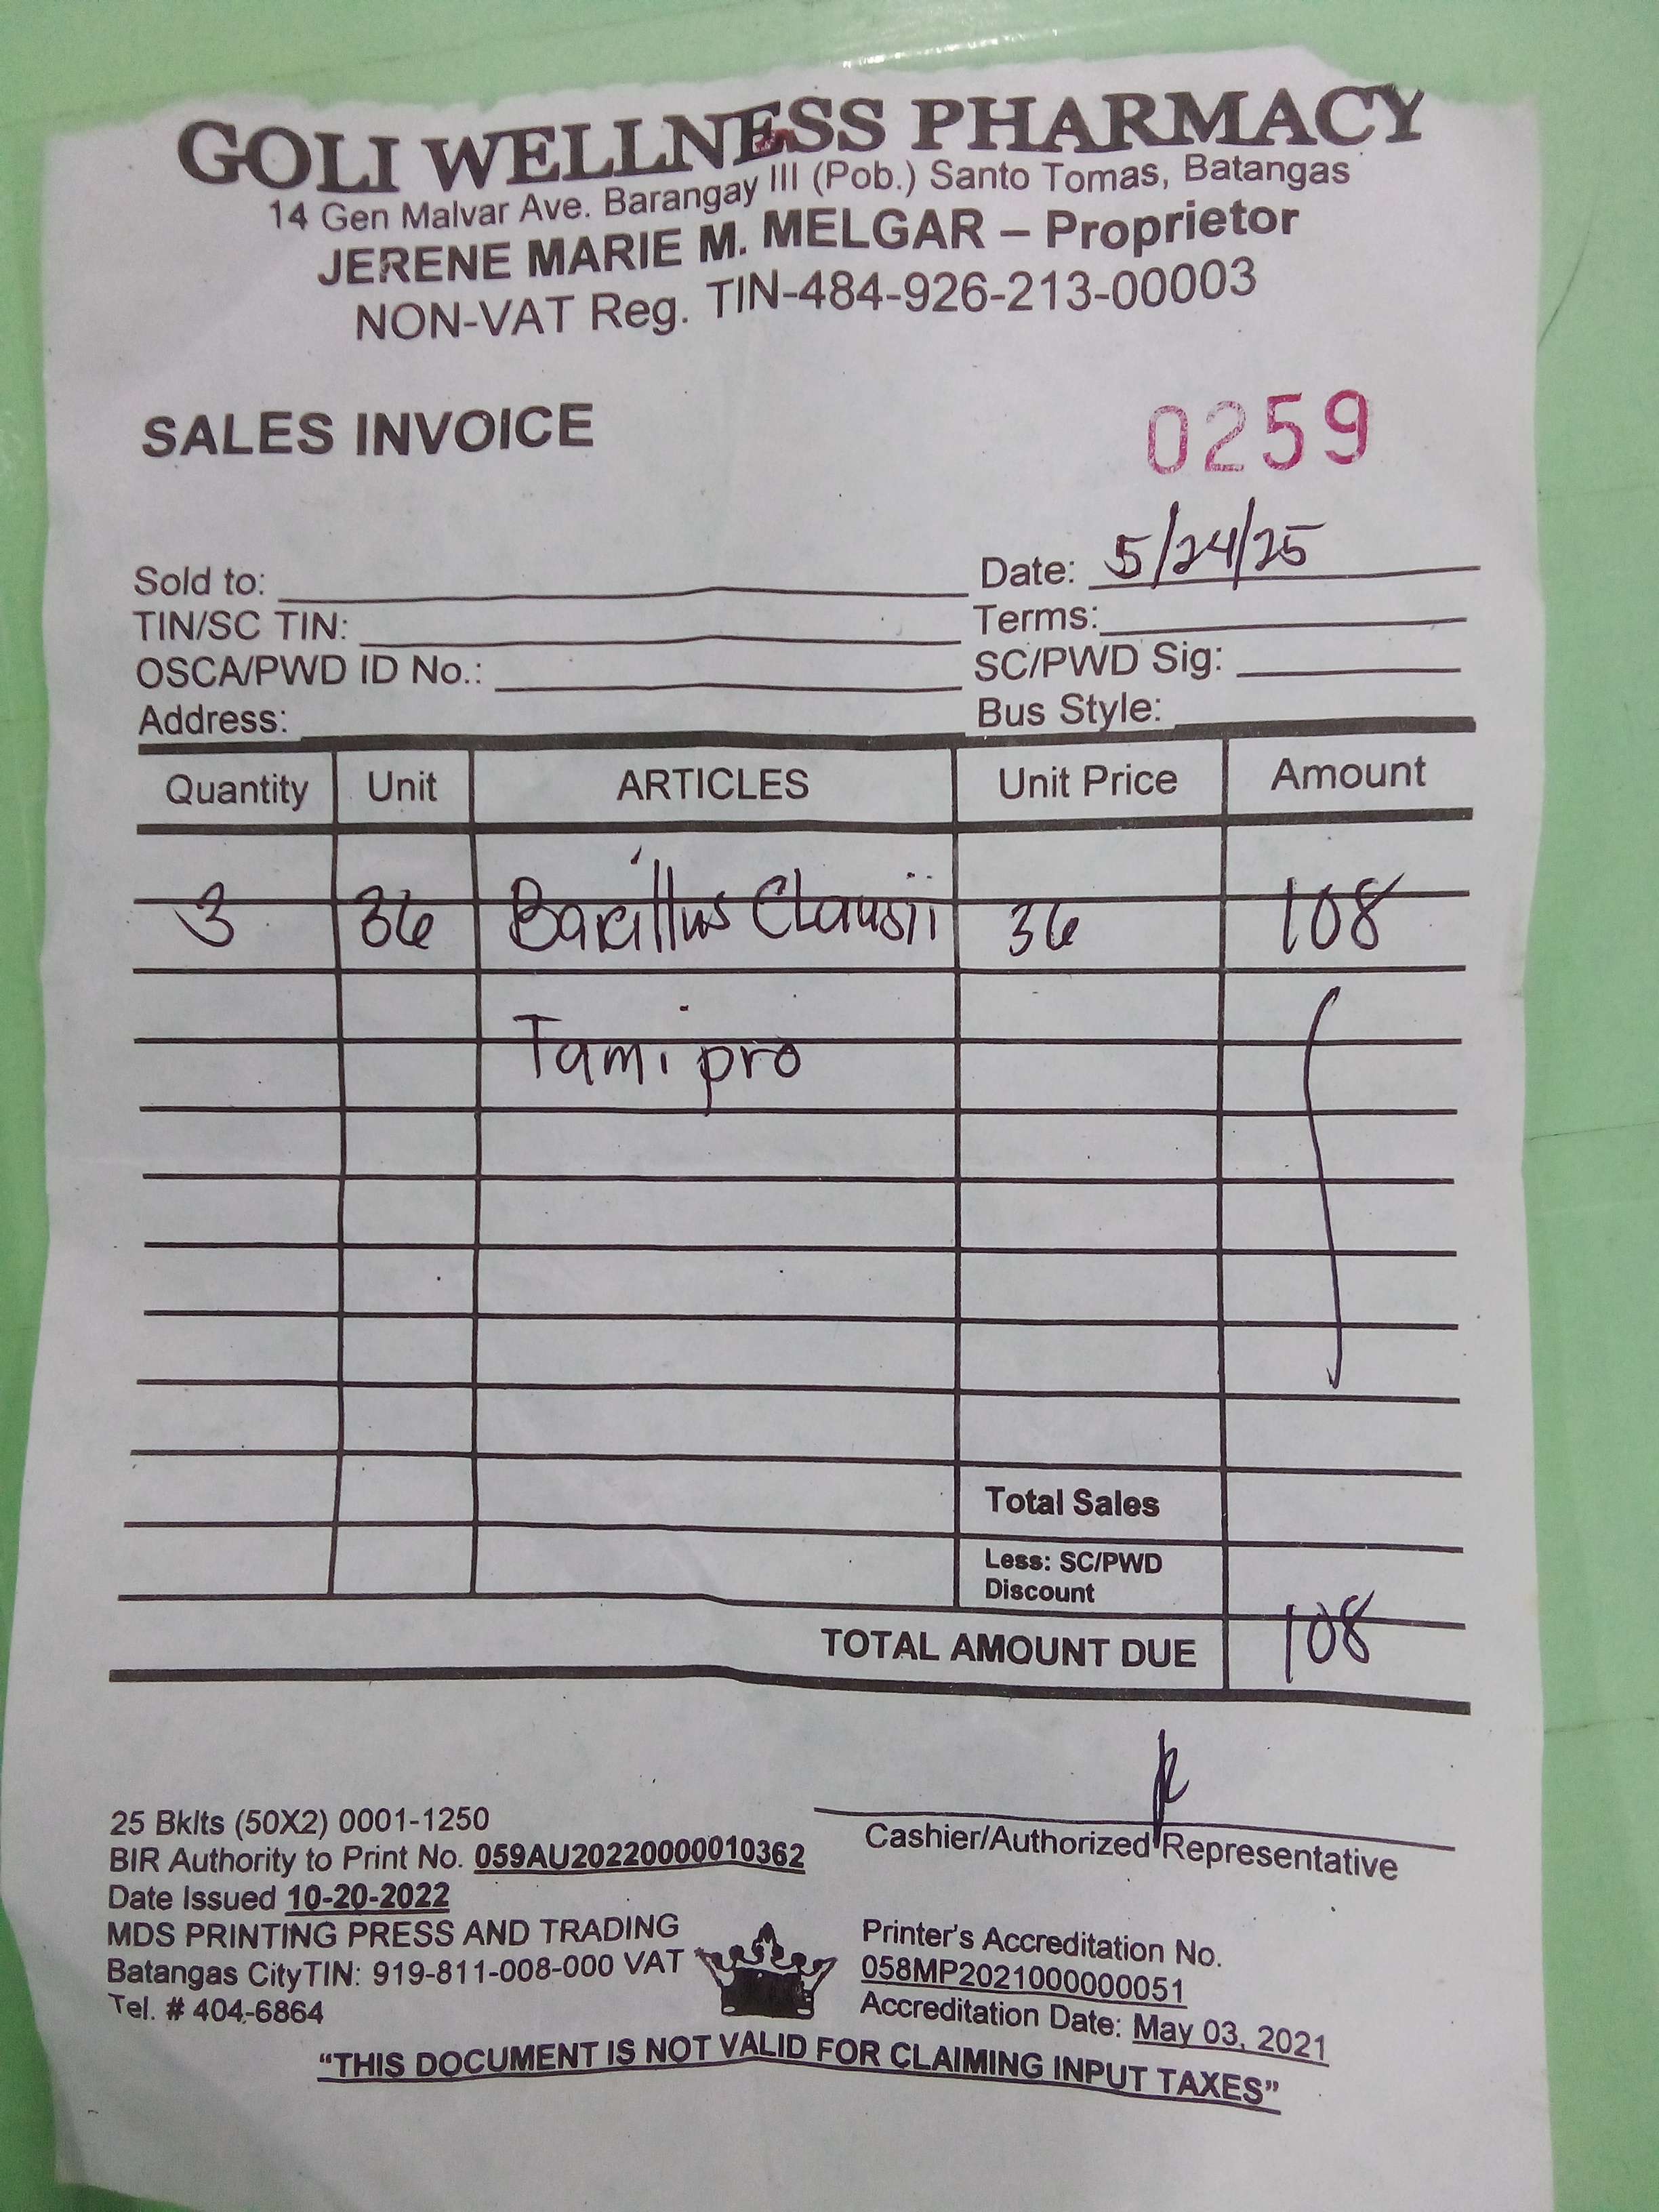 GOLI WELLNESS PHARMACY
14 Gen Malvar Ave. Barangay III (Pob.) Santo Tomas, Batangas
JERENE MARIE M. MELGAR – Proprietor
NON-VAT Reg. TIN-484-926-213-00003
SALES INVOICE 0259
Sold to: Date: 5/24/25
TIN/SC TIN: Terms:
OSCA/PWD ID No.: SC/PWD Sig:
Address: Bus Style:
Quantity Unit ARTICLES Unit Price Amount
3 36 Bacillus Clausii 36 108
Tamipro
Total Sales
Less: SC/PWD
Discount
TOTAL AMOUNT DUE 108
25 Bklts (50X2) 0001-1250
BIR Authority to Print No. 059AU20220000010362
Date Issued 10-20-2022
MDS PRINTING PRESS AND TRADING
Batangas CityTIN: 919-811-008-000 VAT
Tel. # 404-6864
Cashier/Authorized Representative
Printer's Accreditation No.
058MP2021000000051
Accreditation Date: May 03, 2021
“THIS DOCUMENT IS NOT VALID FOR CLAIMING INPUT TAXES”